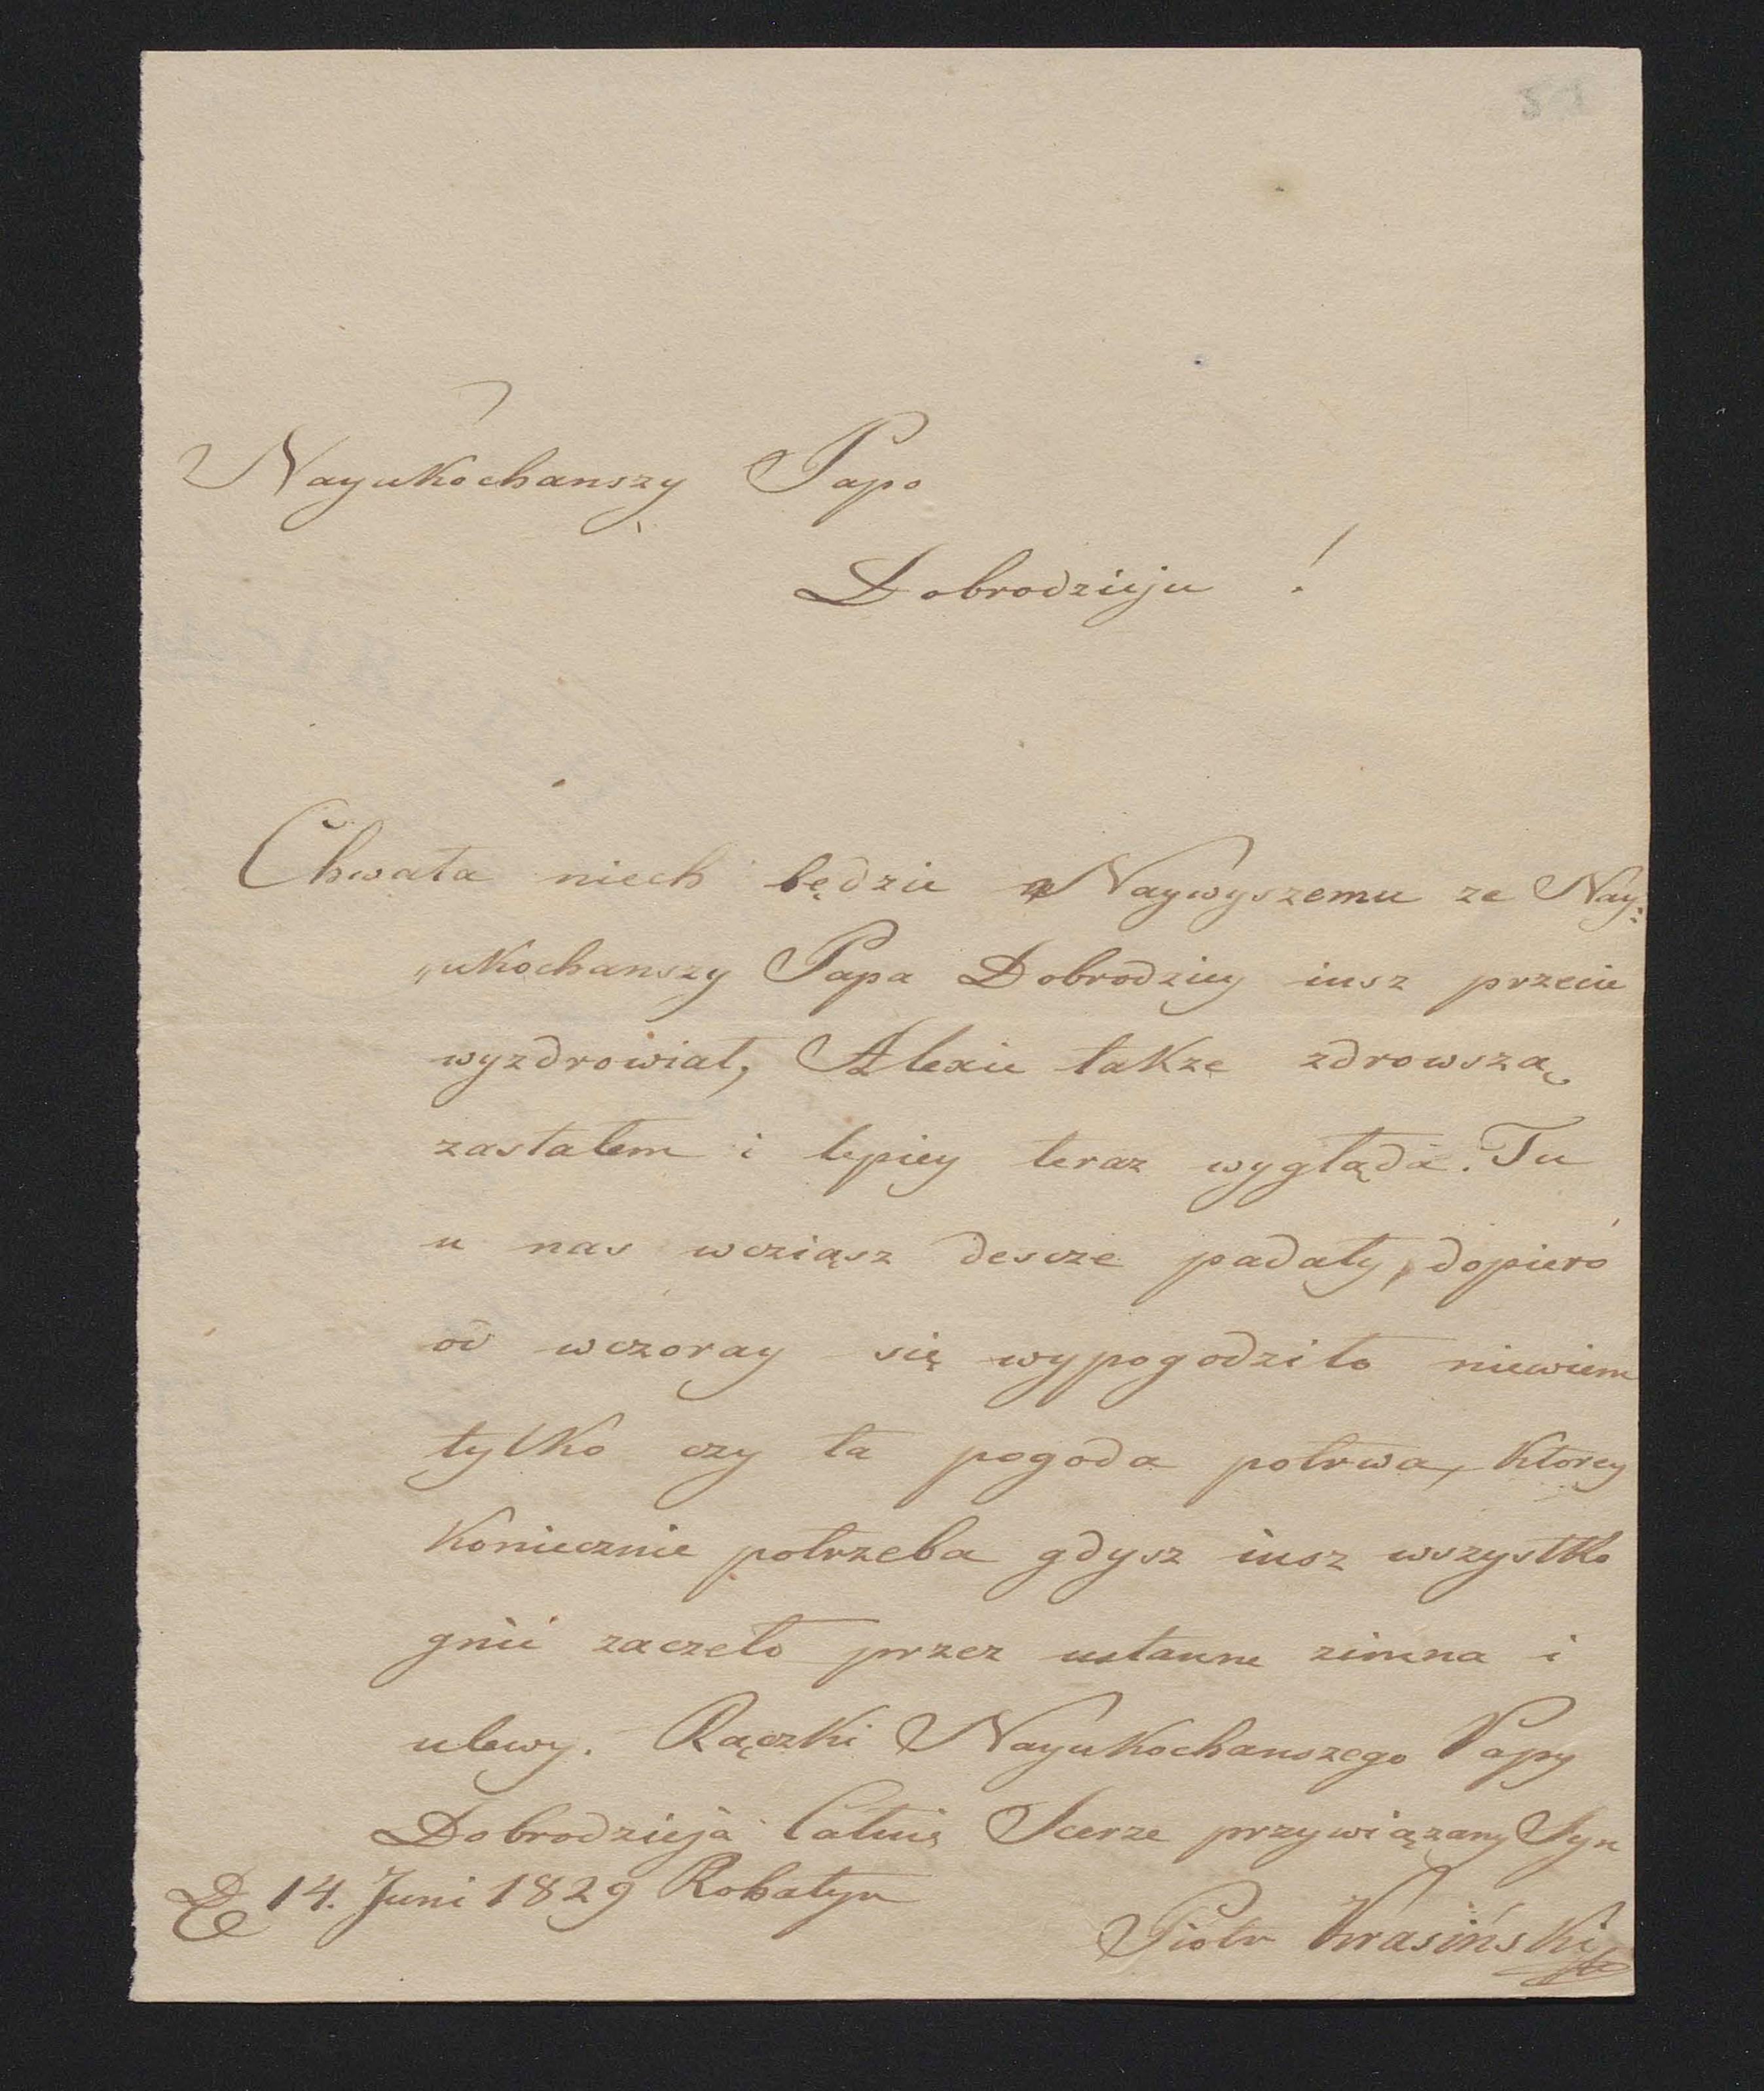 Nayukochanszy Papo
Dobrodzieju !
Chwała niech będzie Naywyszemu ze Nay:
„ukochanszy Papa Dobrodziey iusz przecie
wyzdrowiał, Alexie takze zdrowszą
zastałem i lepiey teraz wygląda. Tu
u nas wcziąsz descze padały, dopiero
od wczoray się wypogodziło niewiem
tylko czy ta pogoda potrwa, ktorey
koniecznie potrzeba gdysz iusz wszystko
gnić zaczeło przez ustanne zimna i
ulewy. Rączki Nayukochanszego Papy
Dobrodzieja Całuię Scerze przywiązany Syn
14. Juni 1829 Rohatyn
Piotr Krasiński